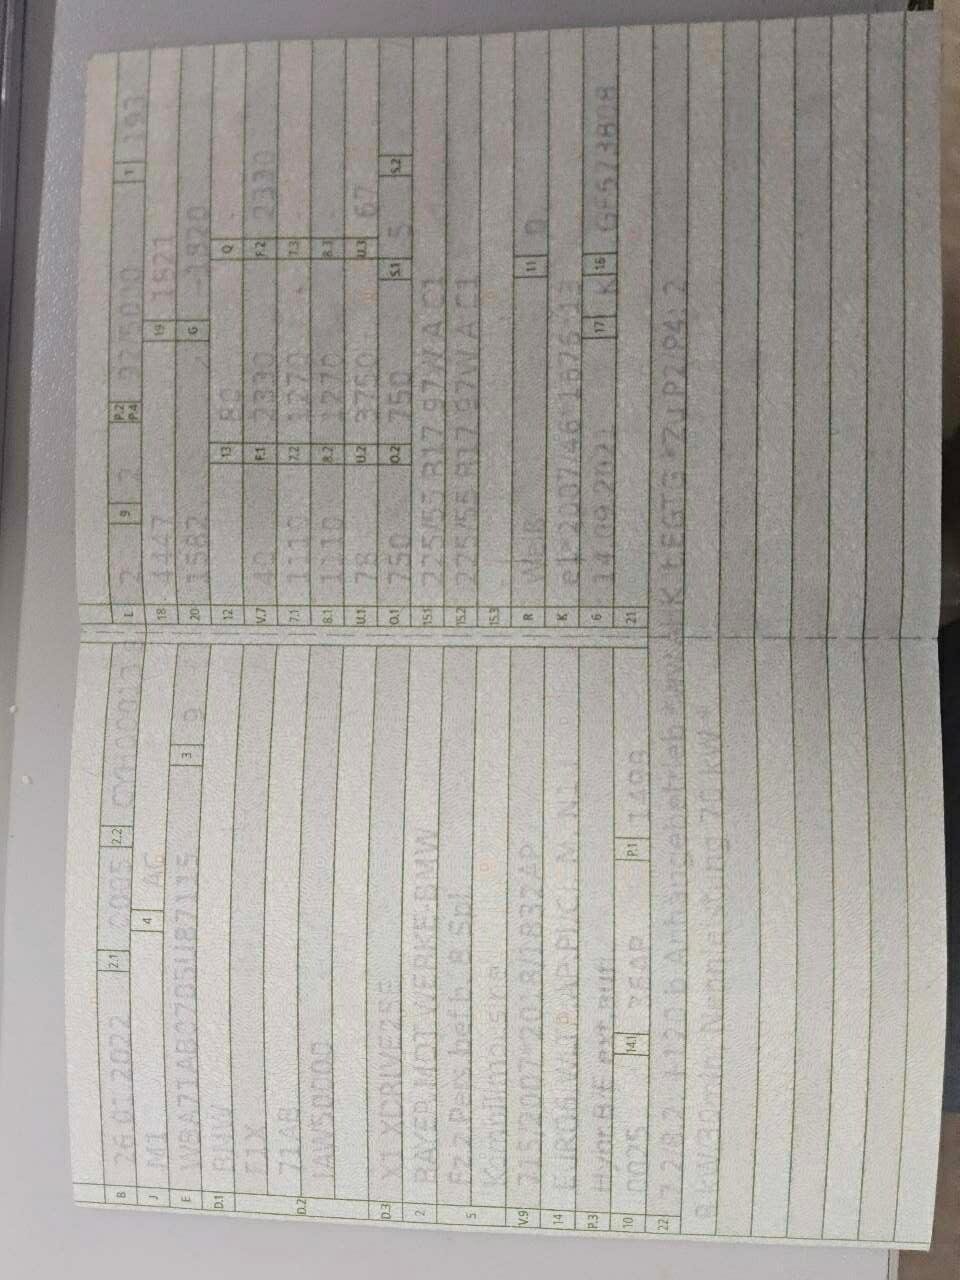 B 26.01.2022 2.1 0005 2.2
J M1 4 AC
E 3 9
D.1 BMW
F1X
D.2 71AB
1AW50000
D.3 X1 XDRIVE25E
2 BAYER.MOT.WERKE-BMW
5 Fz.z.Pers.bef.b. 8 Spl.
Kombilimousine
V.9 715/2007*2018/1832AP
14 EURO6 WLTP,AP,PI,CI, M, N1 I
P.3 Hybr.B/E ext.aufl.
10 0025 14.1 36AP P.1 1499
22 7.2/8.2:+120 b.Anhängebetrieb*zu K:tEGTG *Zu P2/P4: 2
kW/30min Nennleistung 70 kW*
L 2 9 2 P.2 P.4 T 193
18 4447 19 1821
20 1582 G 1820
12 - 13 80 Q -
V.7 40 F.1 2330 F.2 2330
7.1 1110 7.2 1270 7.3 -
8.1 1110 8.2 1270 8.3 -
U.1 78 U.2 3750 U.3 67
O.1 750 O.2 750 S.1 5 S.2
15.1 225/55 R17 97W A C1
15.2 225/55 R17 97W A C1
15.3
R WEIß 11 0
K e1*2007/46*1676*13
6 14.09.2021 17 K 16 GF573808
21